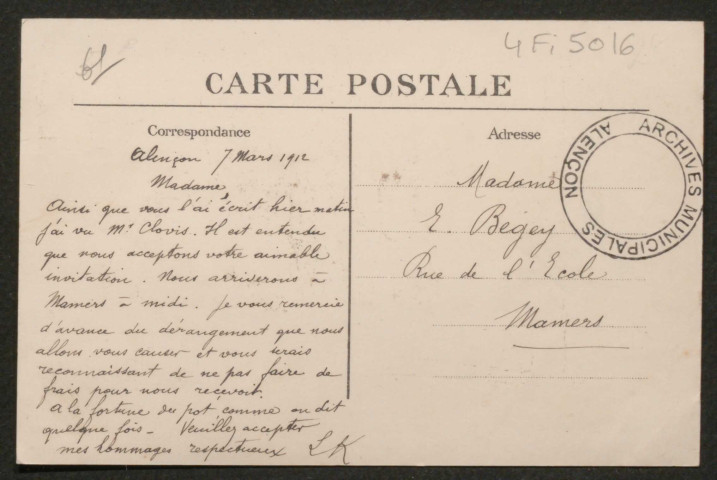 4 Fi 5016
61
CARTE POSTALE
Correspondance
Alençon 7 Mars 1912
Madame,
Ainsi que vous l'ai écrit hier matin
j'ai vu Mr Clovis. Il est entendu
que nous acceptons votre aimable
invitation. Nous arriverons à
Mamers à midi. Je vous remercie
d'avance du dérangement que nous
allons vous causer et vous serais
reconnaissant de ne pas faire de
frais pour nous recevoir.
A la fortune du pot comme on dit
quelque fois - Veuillez accepter
mes hommages respectueux LK
Adresse
Madame
E. Bégey
Rue de l'Ecole
Mamers
ARCHIVES MUNICIPALES
ALENÇON